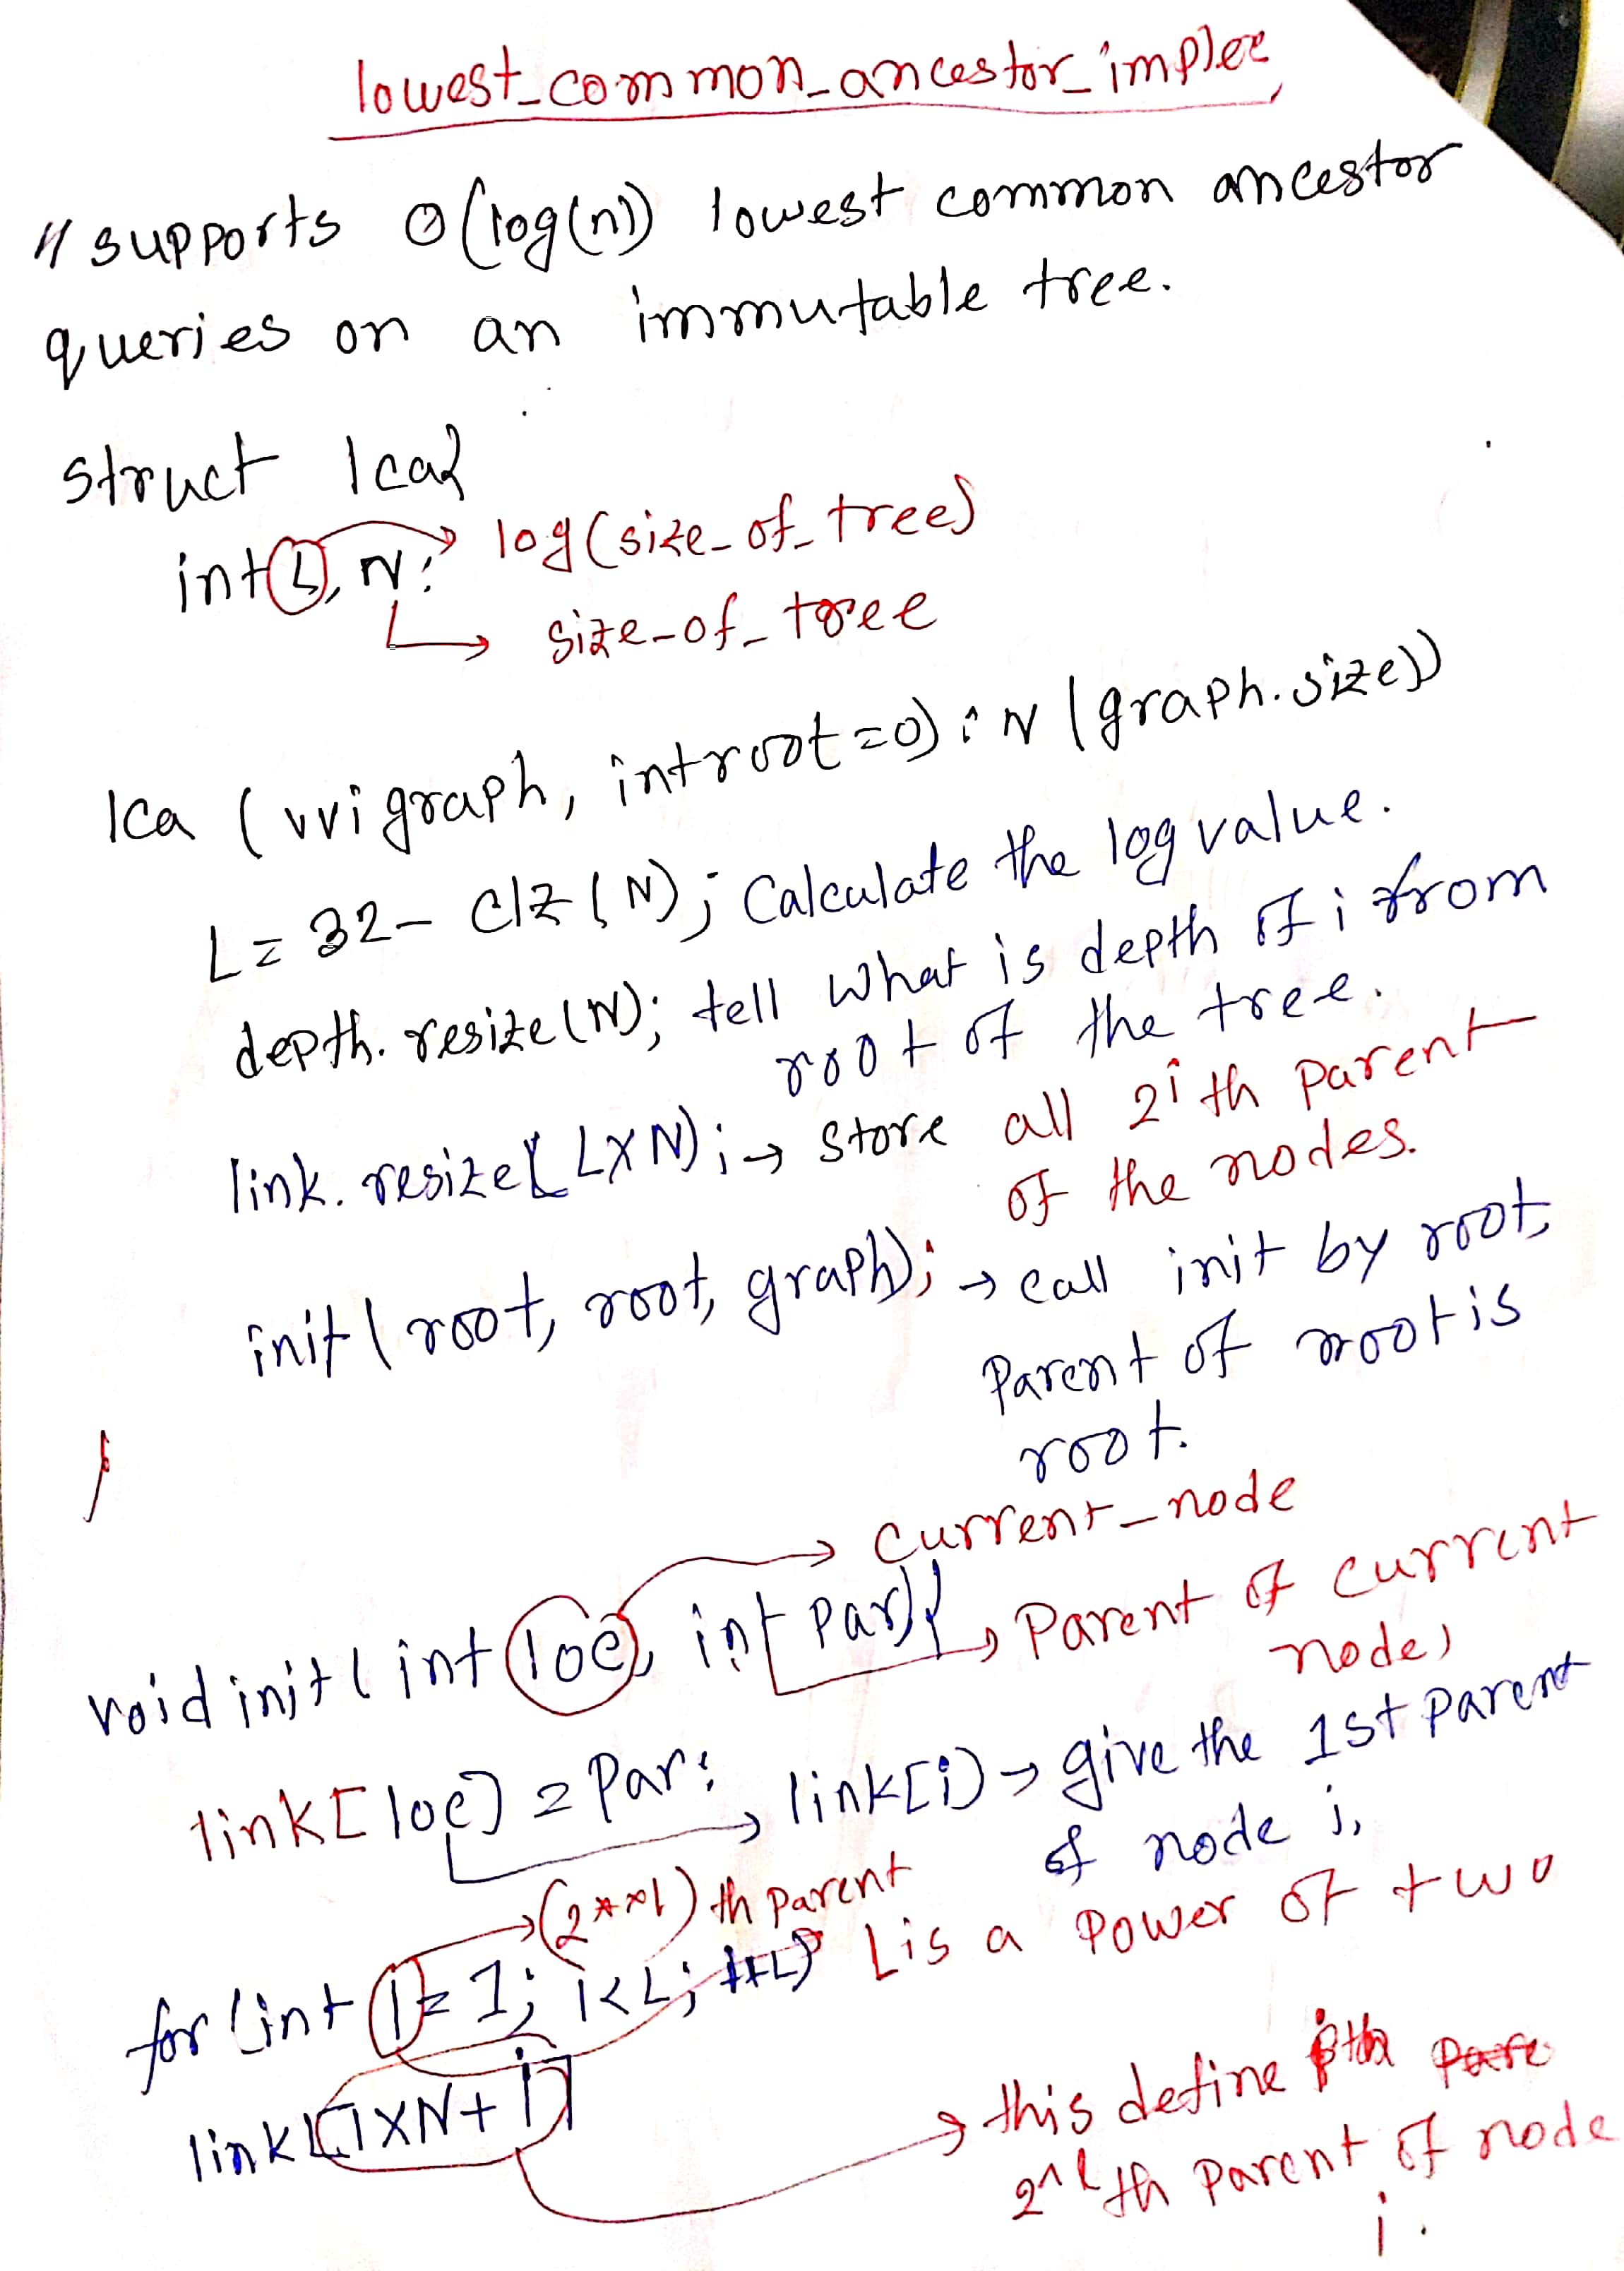 lowest_common_ancestor_implee
// supports O(log(n)) lowest common ancestor
queries on an immutable tree.
struct lca{
int L, N; log(size_of_tree)
size_of_tree
lca (vvi graph, int root=0): N (graph.size))
L = 32 - clz(N); Calculate the log value.
depth. resize(N); tell what is depth of i from
root of the tree.
link. resize( L×N); → Store all 2i th parent
of the nodes.
init( root, root, graph); → call init by root,
Parent of root is
root.
}
Current_node
void init( int loc, int par){ Parent of current
node)
link[loc] = Par; link[i] → give the 1st parent
of node i,
(2**l) th parent
for (int l = 1; l<L; ++L) L is a power of two
link[l×N+i] this define
2^l th parent of node
i.